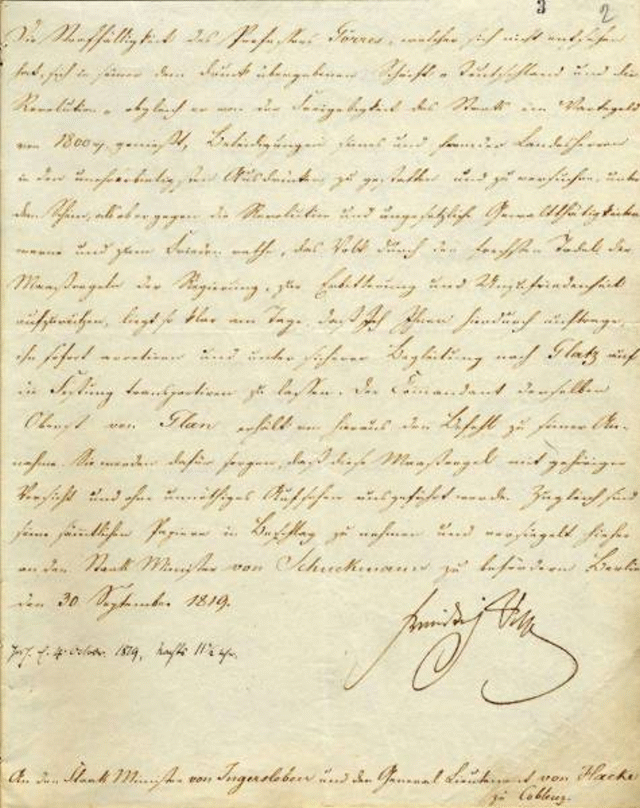 3 2
Die Straffälligkeit des Professors Görres, welcher sich nicht entsehen
hat, sich in seiner dem Druck übergebenen Schrift „Teutschland und die
Revolution“ obgleich er von der Freigebigkeit des Staats ein Wartegeld
von 1800 genießt, Beleidigungen seines und fremder Landesherren
in den unehrerbietigsten Ausdrücken zu gestatten und zu versuchen, unter
dem Schein, als ob er gegen die Revolution und ungesetzliche Gewaltthätigkeiten
warne und zum Frieden rathe, das Volk durch den frechsten Tadel der
Maaßregeln der Regierung, zur Erbitterung und Unzufriedenheit
aufzureitzen, liegt so klar am Tage, daß Ich Ihnen hierdurch auftrage,
ihn sofort arretiren und unter sicherer Begleitung nach Glatz auf
die Festung transportiren zu lassen. Der Commandant derselben
Oberst von Glan erhält von hieraus den Befehl zu seiner An-
nahme. Sie werden dafür sorgen, daß diese Maaßregel mit gehöriger
Vorsicht und ohne unnöthiges Aufsehen ausgeführt werde. Zugleich sind
seine sämtlichen Papiere in Beschlag zu nehmen und versiegelt hieher
an den Staats Minister von Schuckmann zu befördern Berlin
den 30 September 1819.
Friedrich Wilhelm
4 October 1819, Nachts 11½ Uhr.
An den Staats Minister von Ingersleben und den General Lieutenant von Hacke
zu Coblenz.